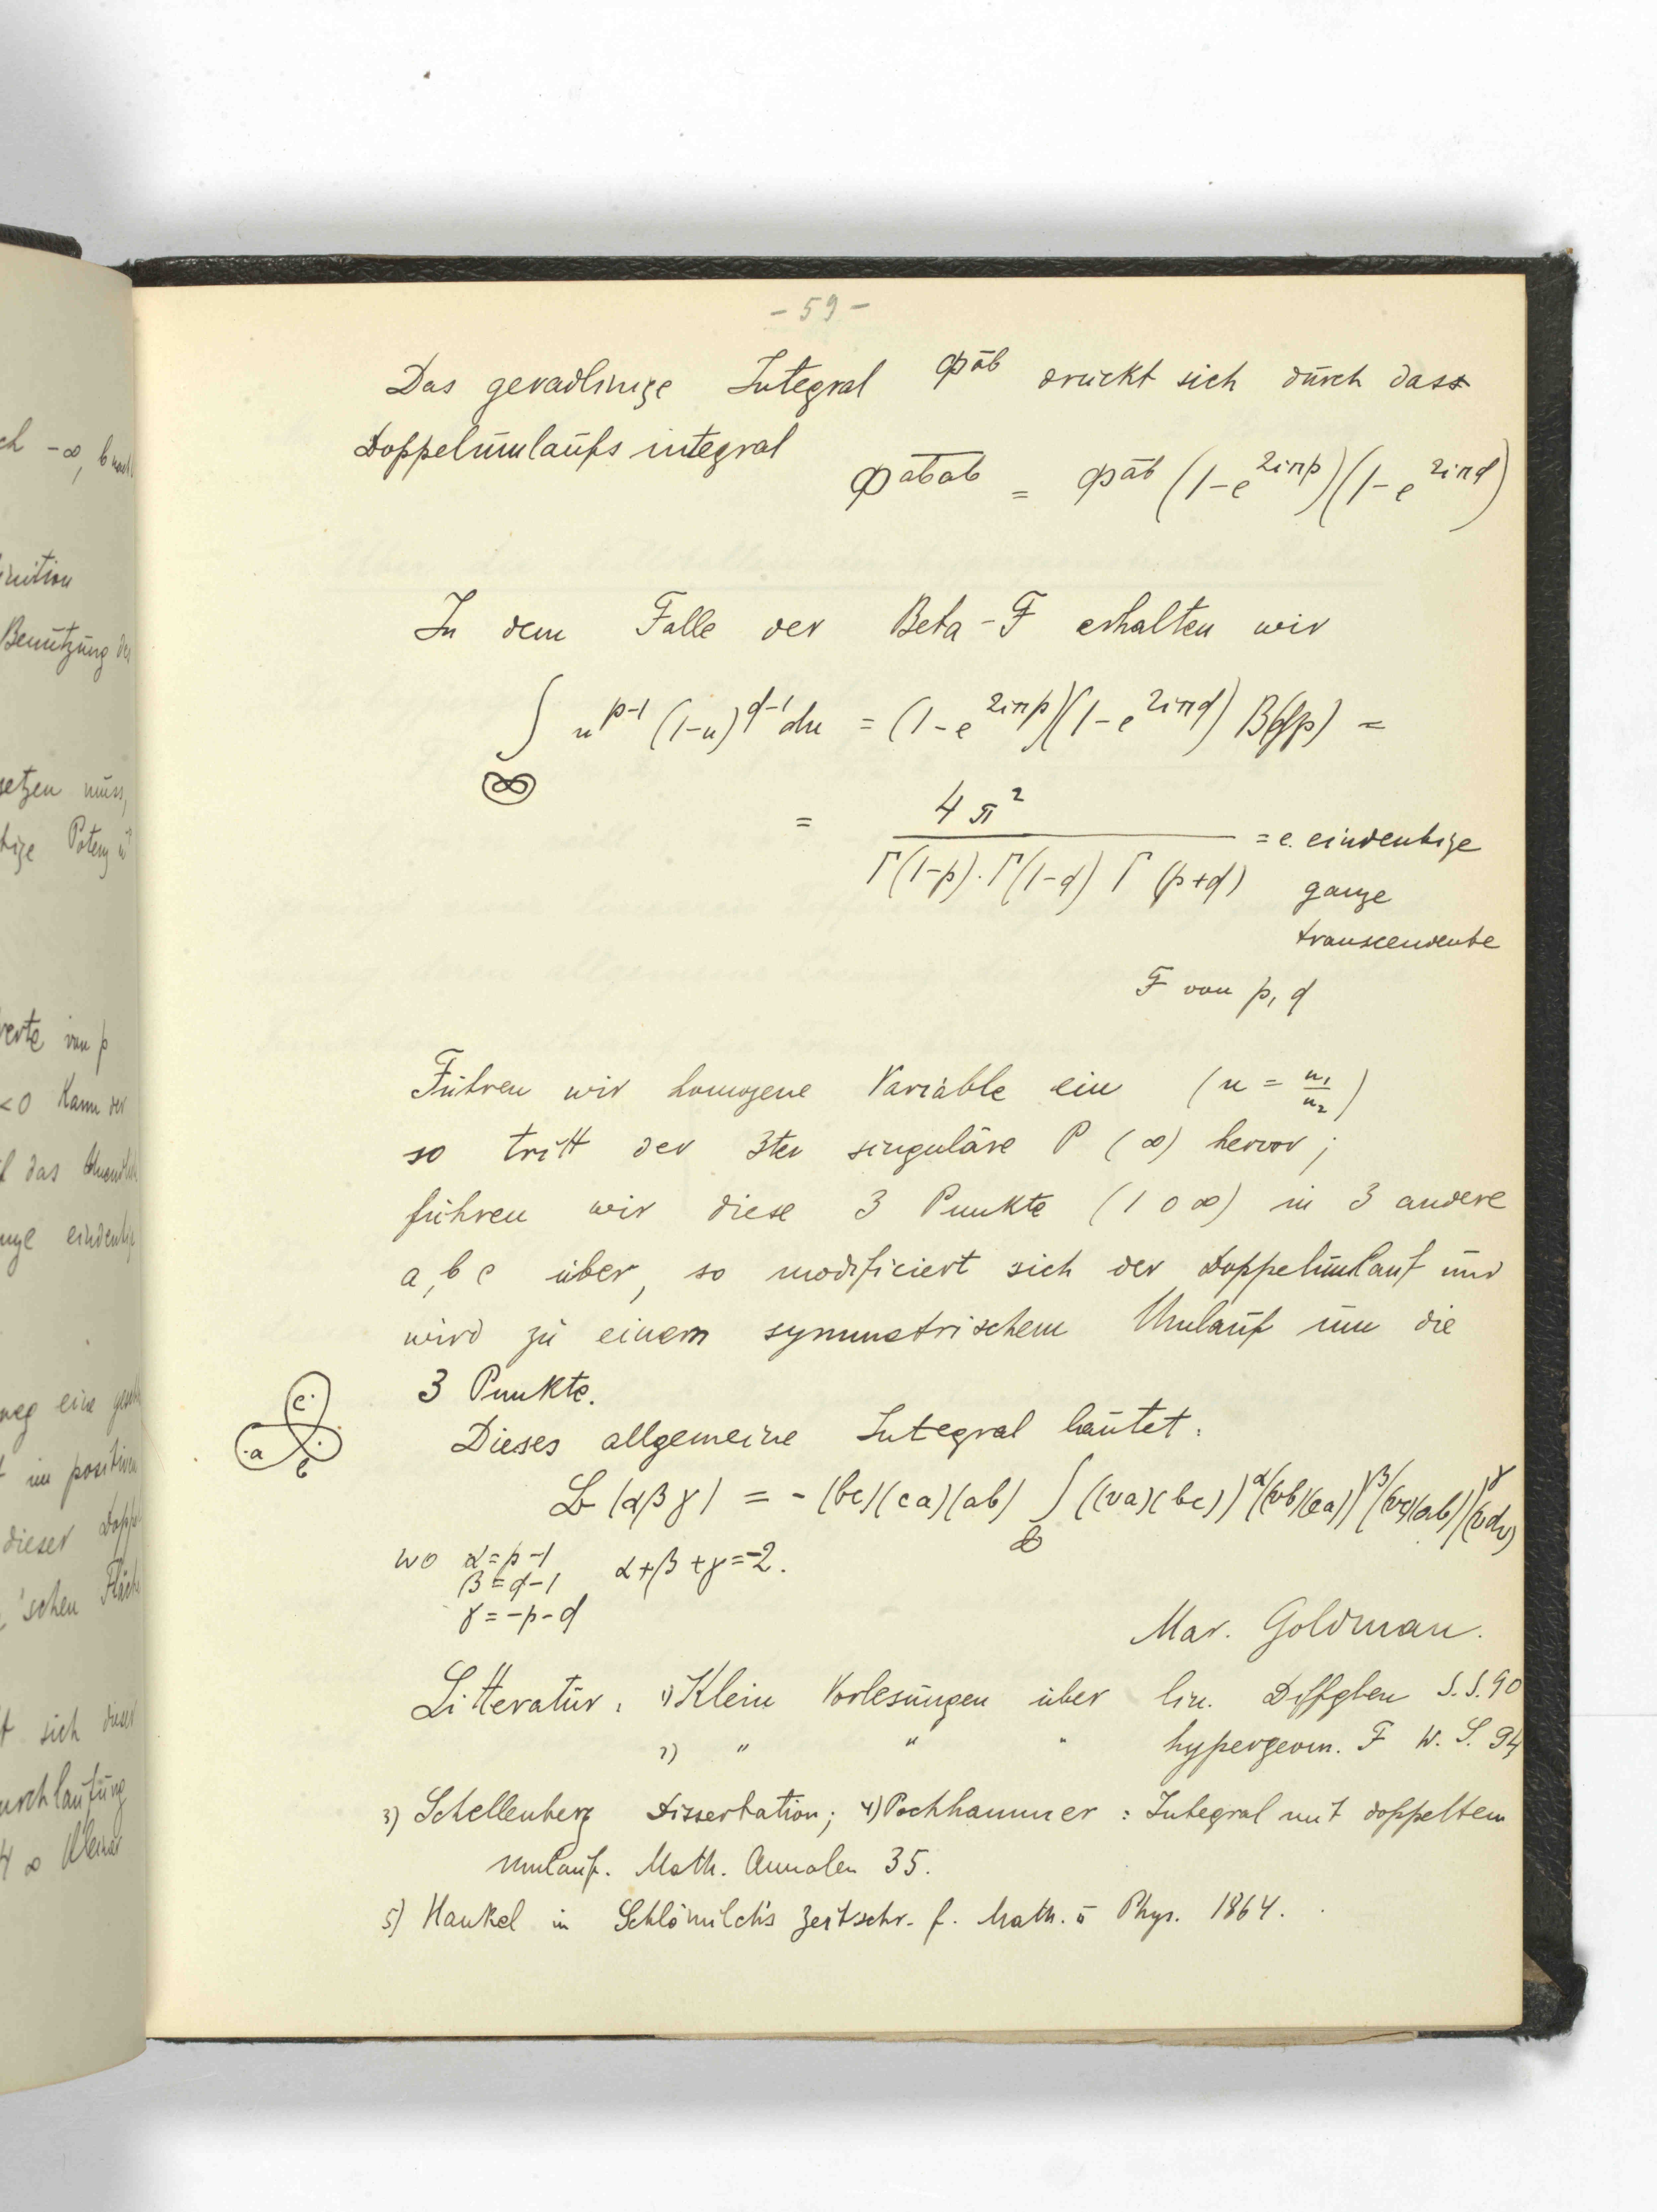 - 59 -
Das geradlinige Integral Φ^{āb} drückt sich durch dass
Doppelumlaufsintegral
Φ^{\overline{abab}} = Φ^{āb} (1-e^{2iπp})(1-e^{2iπq})
In dem Falle der Beta-F erhalten wir
∫ u^{p-1} (1-u)^{q-1} du = (1-e^{2iπp})(1-e^{2iπq}) B(qp) =
= 4π² / Γ(1-p).Γ(1-q) Γ(p+q) = e. eindeutige
ganze
transcendente
F von p, q
Führen wir homogene Variable ein (u = u₁/u₂)
so tritt der 3te singuläre P (∞) hervor;
führen wir diese 3 Punkte (1 0 ∞) in 3 andere
a, b c über, so modificiert sich der Doppelumlauf und
wird zu einem symmetrischem Umlauf um die
3 Punkte.
c a b
Dieses allgemeine Integral lautet:
(αβγ) = - (bc)(ca)(ab) ∫ ((va)(bc))^α ((vb)(ca))^β ((vc)(ab))^γ (vdv)
wo α = p-1 α+β+γ = -2.
β = q-1
γ = -p-q
Mar. Goldman.
Litteratur: 1) Klein Vorlesungen über lin. Diffglen S.S. 90
2) " " " hypergeom. F W. S. 94
3) Schellenberg Dissertation; 4) Pochhammer: Integral mit doppeltem
Umlauf. Math. Annalen 35.
5) Hankel in Schlömilch's Zeitschr. f. Math. u Phys. 1864.